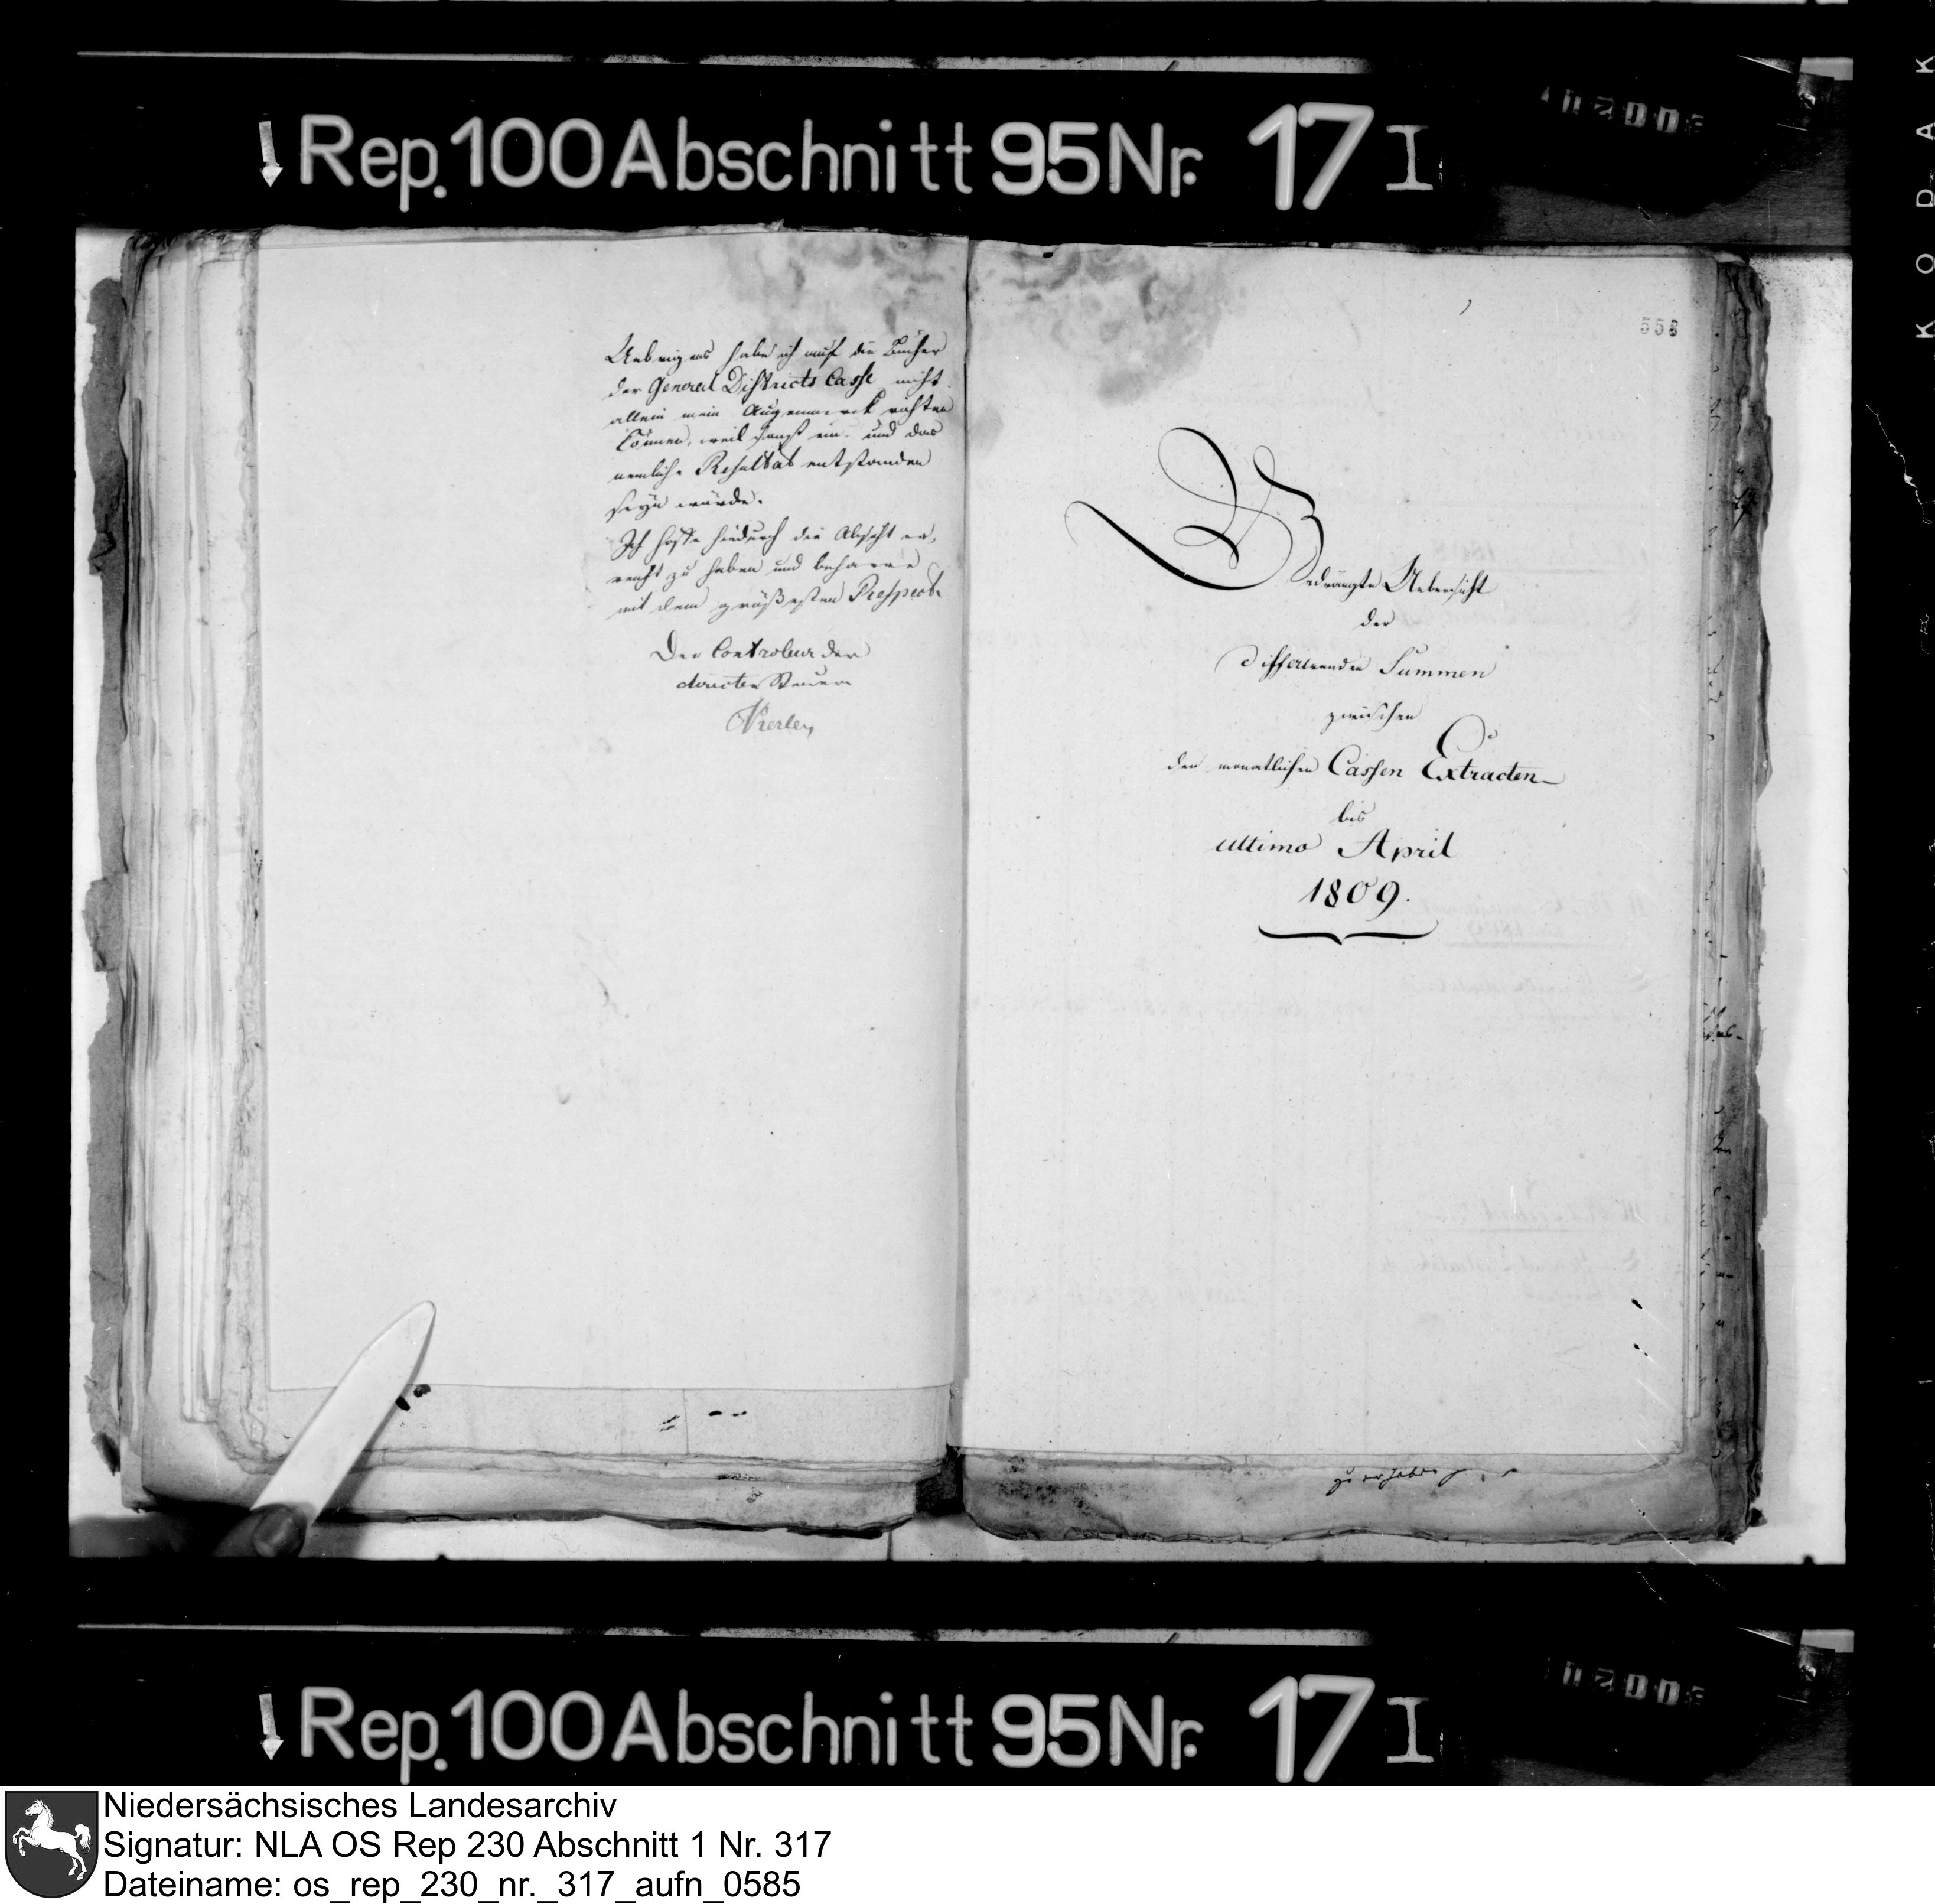 Rep. 100 Abschnitt 95 Nr. 17 I
Uebrigens habe ich auf die Bücher
der General Districts Casse nicht
allein mein Augenmerk richten
können, weil sonst ein und das
nemliche Resultat entstanden
seyn würde.
Ich hoffe hiedurch die Absicht er-
reicht zu haben und beharre
mit dem größesten Respect.
Der Controleur der
directen Steuern
558
Gedrängte Uebersicht
der
differirenden Summen
zwischen
den monatlichen Cassen Extracten
bis
ultimo April
1809.
zu erheben
KODAK
Rep. 100 Abschnitt 95 Nr. 17 I
Niedersächsisches Landesarchiv
Signatur: NLA OS Rep 230 Abschnitt 1 Nr. 317
Dateiname: os_rep_230_nr._317_aufn_0585